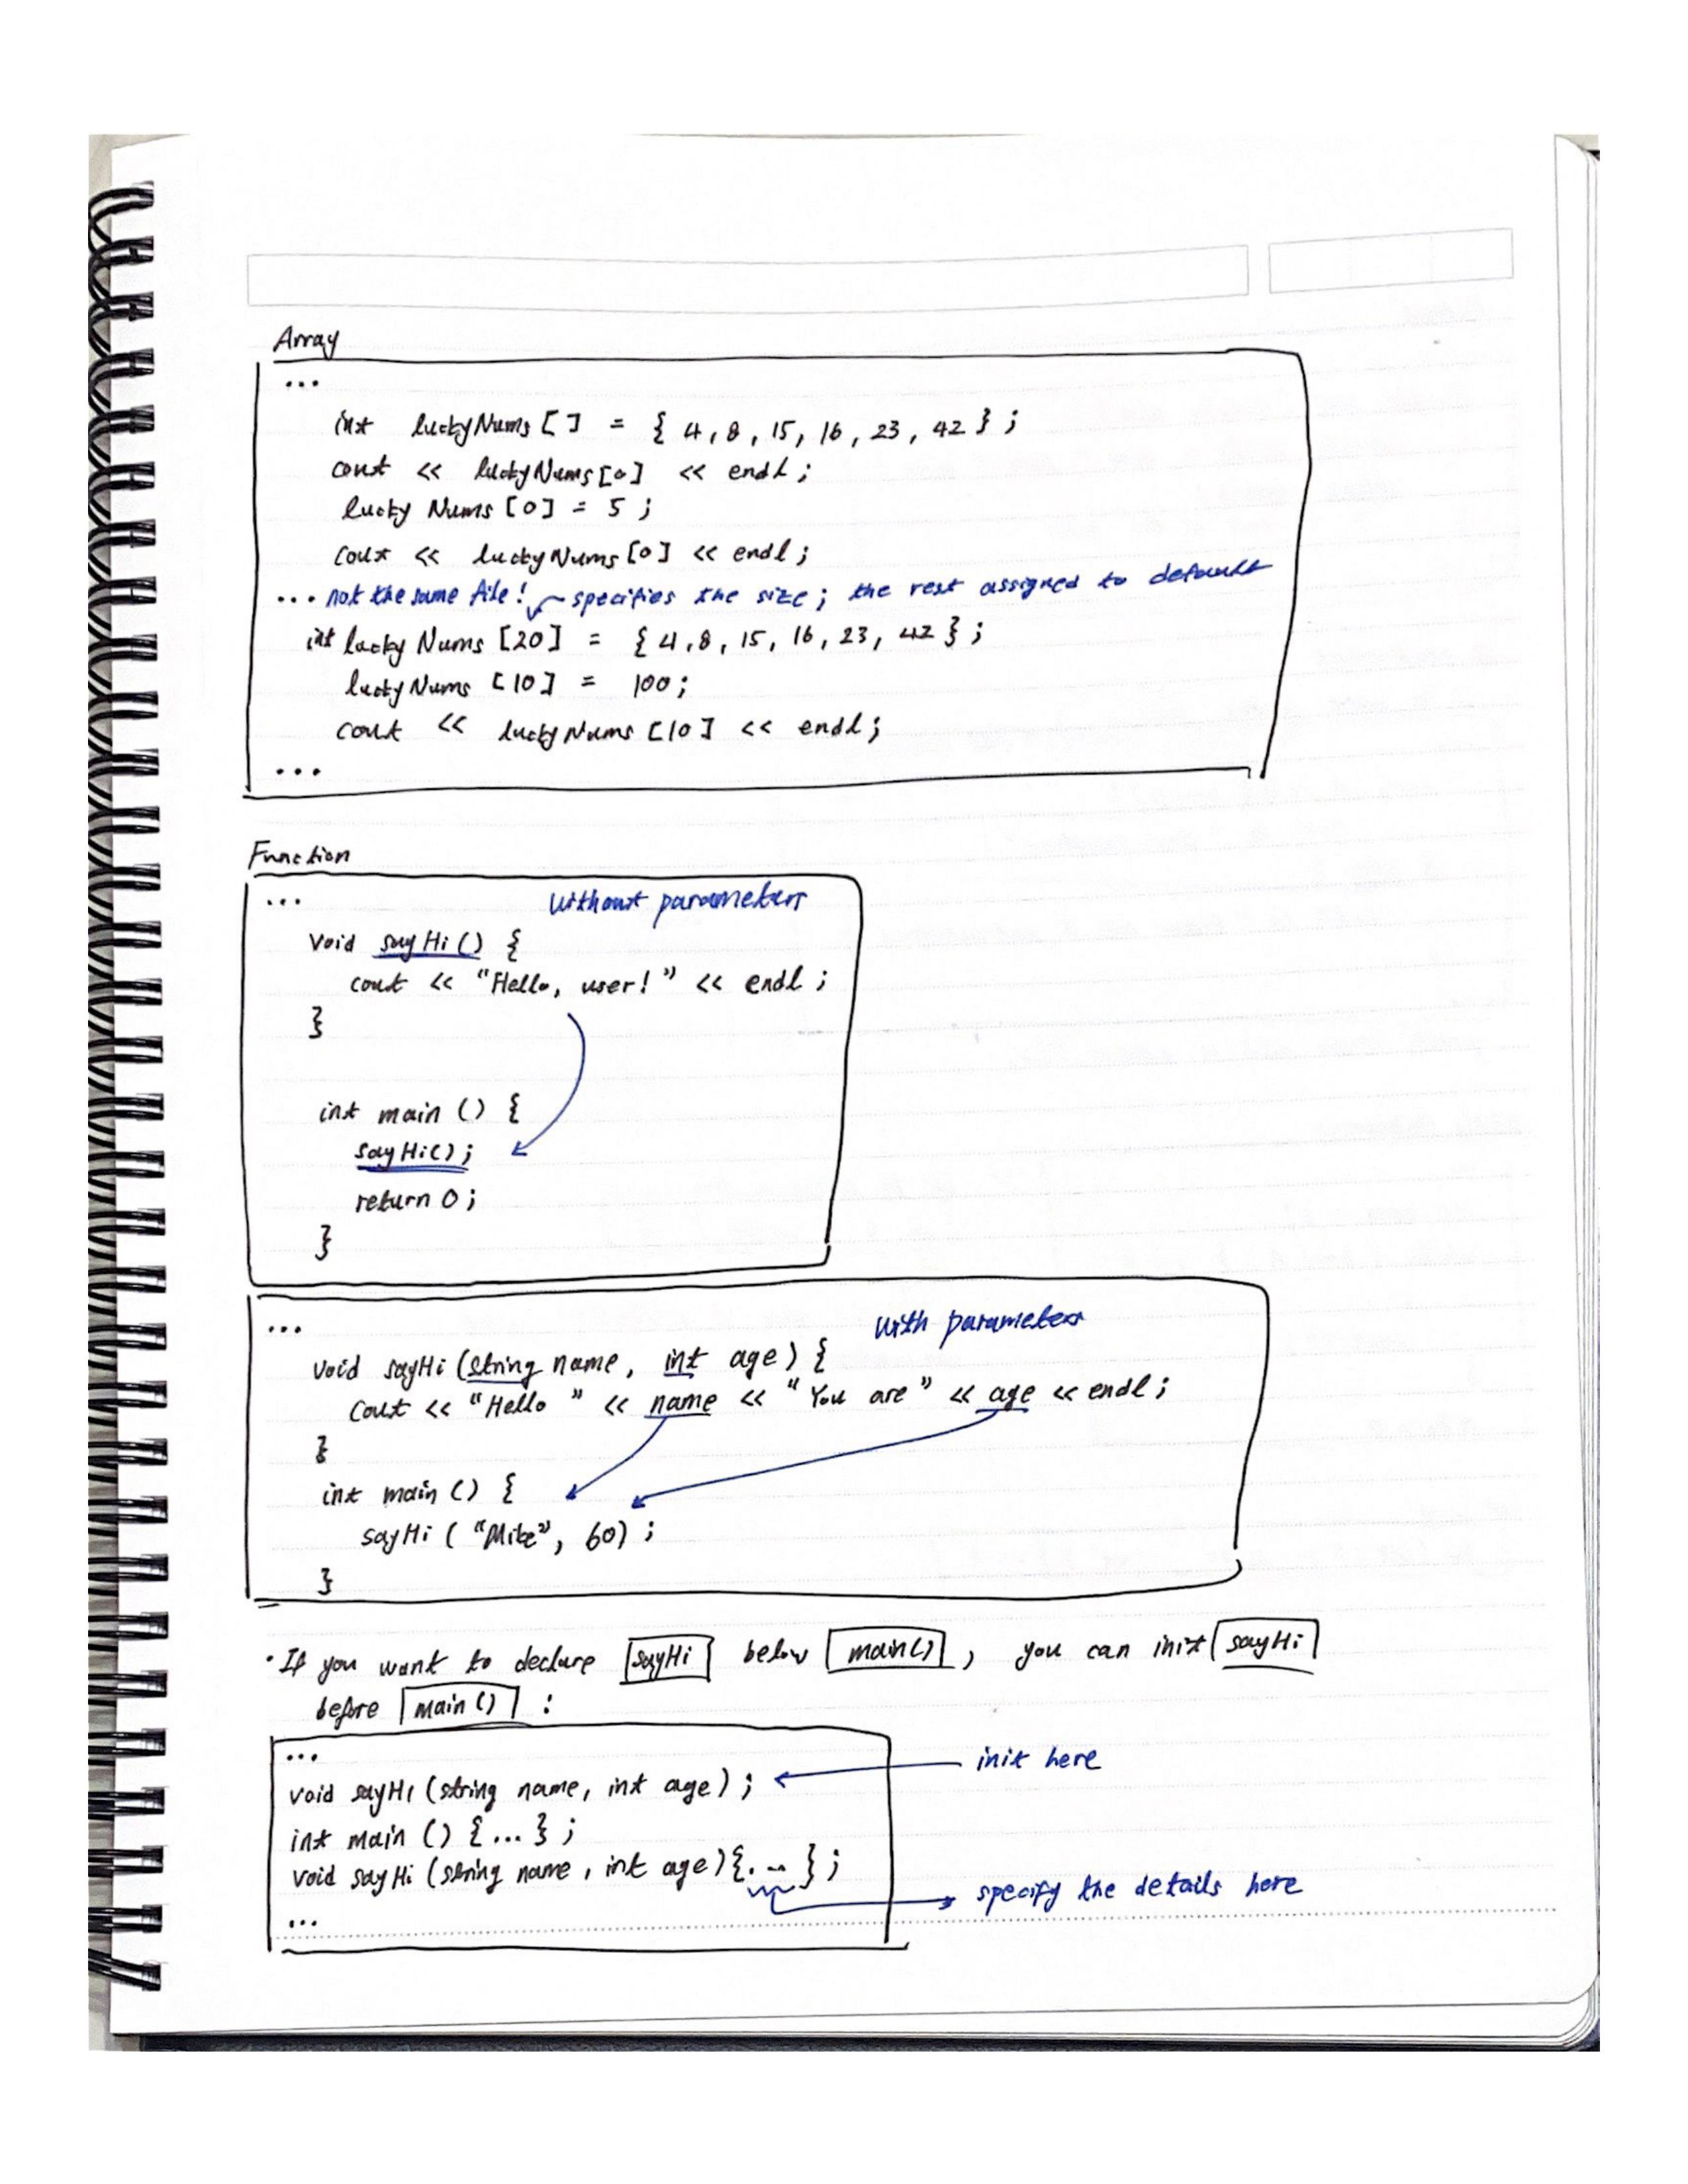 Array
...
int luckyNums [ ] = { 4, 8, 15, 16, 23, 42 } ;
cout << luckyNums[0] << endl ;
lucky Nums [0] = 5 ;
cout << luckyNums [0] << endl ;
... not the same file! specifies the size ; the rest assigned to default
int lucky Nums [20] = { 4, 8, 15, 16, 23, 42 } ;
luckyNums [10] = 100 ;
cout << luckyNums [10] << endl ;
...
Function
... without parameters
void sayHi () {
cout << "Hello, user! " << endl ;
}
int main () {
sayHi() ;
return 0 ;
}
... with parameters
void sayHi (string name, int age) {
cout << "Hello " << name << " You are " << age << endl ;
}
int main () {
sayHi ( "Mike", 60) ;
}
· If you want to declare sayHi below main() , you can init sayHi
before main () :
...
void sayHi (string name, int age) ; init here
int main () { ... } ;
void sayHi (string name , int age) { ... } ;
specify the details here
...